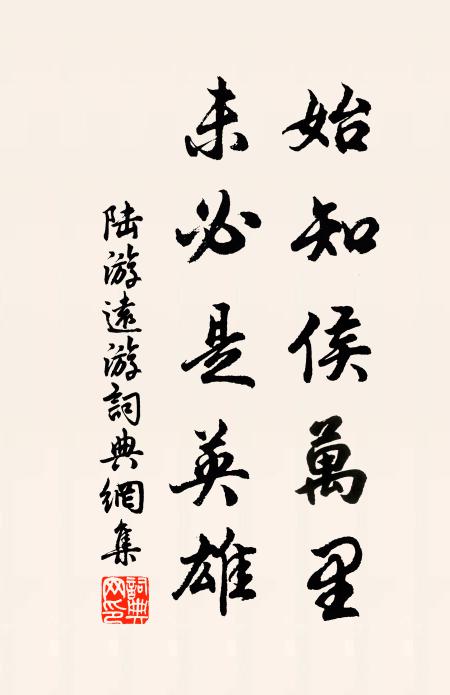 始知侯萬里
未必是英雄
陸游遠游詞典網集
詞典網印